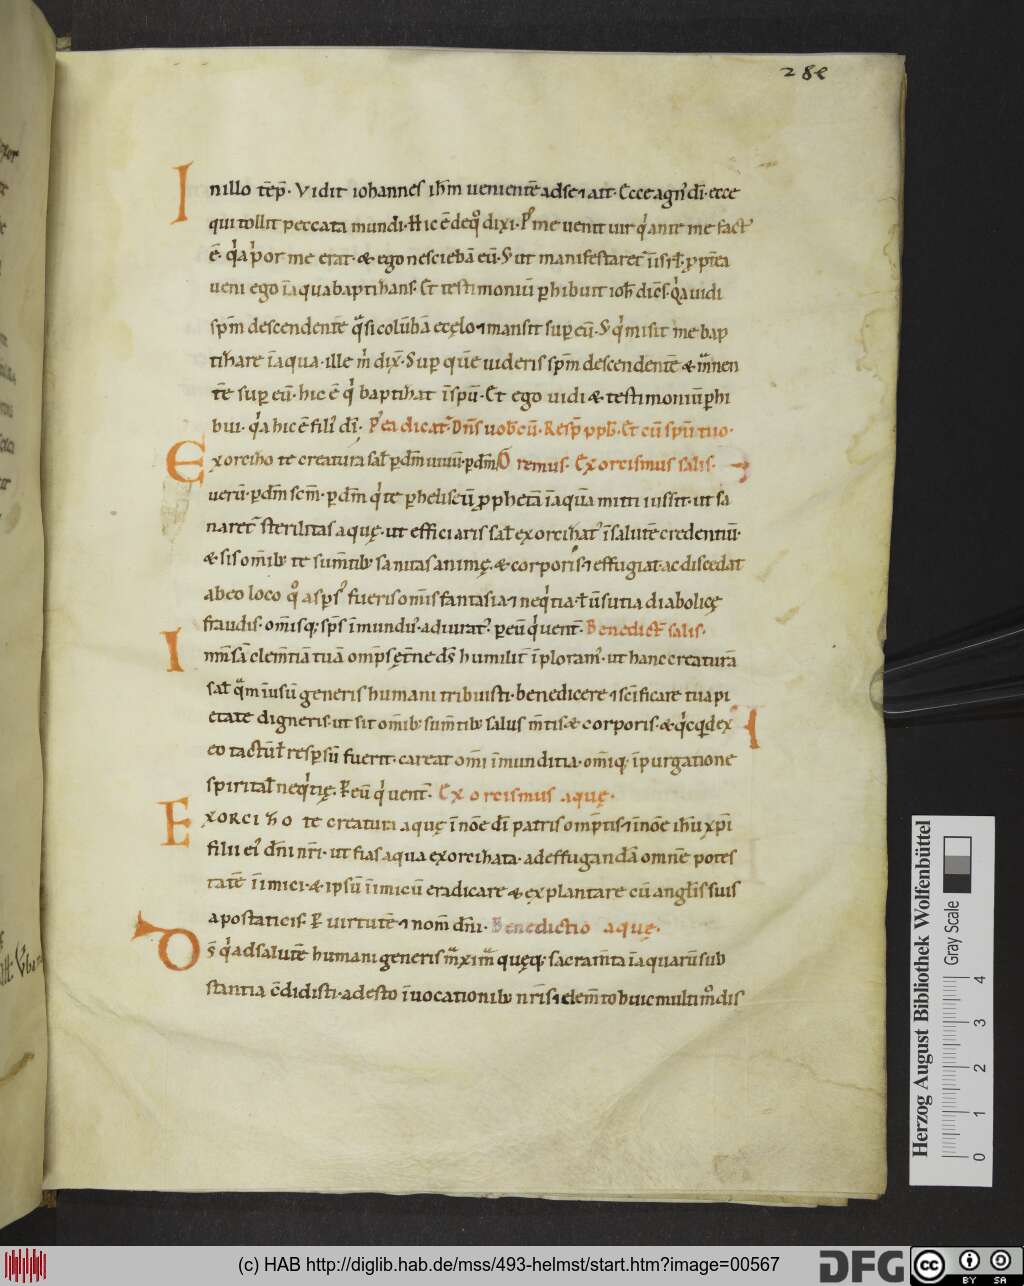 284
I nillo te͞p· Vidit iohannes ih͞m veniente͞ adse ⁊ ait· Ecce agn᷒ di͞· ecce
qui tollit peccata mundi· Hic e͞ deqͦ dixi· P᷒ me venit uir qͥ ante me fact᷒
e͞· qͥa pͥor me erat· & ego nescieba͞ eu͞· S; ut manifestaret᷒ i͞ isrl͞· ꝓpt͞ea
veni ego i͞ aqua baptihans· Et testimoniu͞ ꝑhibuit ioh͞ dice͞s· qͥa uidi
sp͞m descendente͞ qᷓsi colu͞ba͞ de cęlo ⁊ mansit suꝑ eu͞· S; qͥ misit me bap
tihare i͞ aqua· ille mͥ dix͞· Suꝑ que͞ uideris sp͞m descendente͞ & manen
te͞ suꝑ eu͞· hic e͞ qͥ baptihat i͞ sp͞u· Et ego vidi & testimoniu͞ ꝑhi
bui· qͥa hic e͞ fili᷒ di͞· P᷒ ea dicat᷒ Dn͞s uob͞cu͞· Resp͞ pp͞l᷒· Et cu͞ sp͞u tuo·
Exorciho te creatura sal᷒ ꝑ dm͞ uiuu͞· ꝑ dm͞ Oremus· Exorcismus salis·
veru͞· ꝑ dm͞ sc͞m· ꝑ dm͞ qͥ te ꝑ heliseu͞ ꝓpheta͞ i͞ aqua͞ mitti iussit· ut sa
naret᷒ sterilitas aquę· ut efficiaris sal᷒ exorcihat᷒ i͞ salute͞ credentiu͞·
& sis om͞ib; te sum͞tib; sanitas animę· & corporis· ⁊ effugiat· ac discedat
ab eo loco qͦ aspers᷒ fueris om͞is fantasia ⁊ neqͥtia· ł u͞sutia diabolicę
fraudis· om͞isq; sp͞s i͞mund᷒· adiurat᷒· ꝑ eu͞ qͥ uent᷒· Benedict᷒ salis·
Im͞nsa͞ clem͞tia͞ tua͞ omp͞s et͞ne ds͞ humilit᷒ i͞ploram᷒· ut hanc creatura͞
sal᷒ qᷓm i͞ usu͞ generis humani tribuisti· benedicere ⁊ sc͞ificare tua pi
etate digneris· ut sit om͞ib; sum͞tib; salus m͞tis· & corporis· & qͥcqͥd ex
eo tactu͞ ł resꝑsu͞ fuerit· careat om͞i i͞munditia· om͞iq; i͞purgatione
spirital᷒ neqͥtię· Ꝑ eu͞ qͥ uent᷒· Exorcismus aquę·
Exorciho te creatura aquę i͞ no͞e di͞ patris omp͞tis· ⁊ i͞ no͞e ih͞u xp͞i
filii ei᷒ dn͞i nr͞i· ut fias aqua exorcihata· ad effuganda͞ omne͞ potes
tate͞ i͞imici· & ipsu͞ i͞imicu͞ eradicare & explantare cu͞ angl͞is suis
apostaticis· Ꝑ virtute͞ ⁊ nom͞ dn͞i· Benedictio aquę·
Ds͞ qͥ ad salute͞ humani generis mᷓximᷓ quęq; sacram͞ta i͞ aquaru͞ sub
stantia co͞didisti· adesto i͞uocationib; nr͞is· ⁊ elem͞to huic multimͦdis
Herzog August Bibliothek Wolfenbüttel
Gray Scale
0 1 2 3 4
(c) HAB http://diglib.hab.de/mss/493-helmst/start.htm?image=00567
DFG
cc BY SA